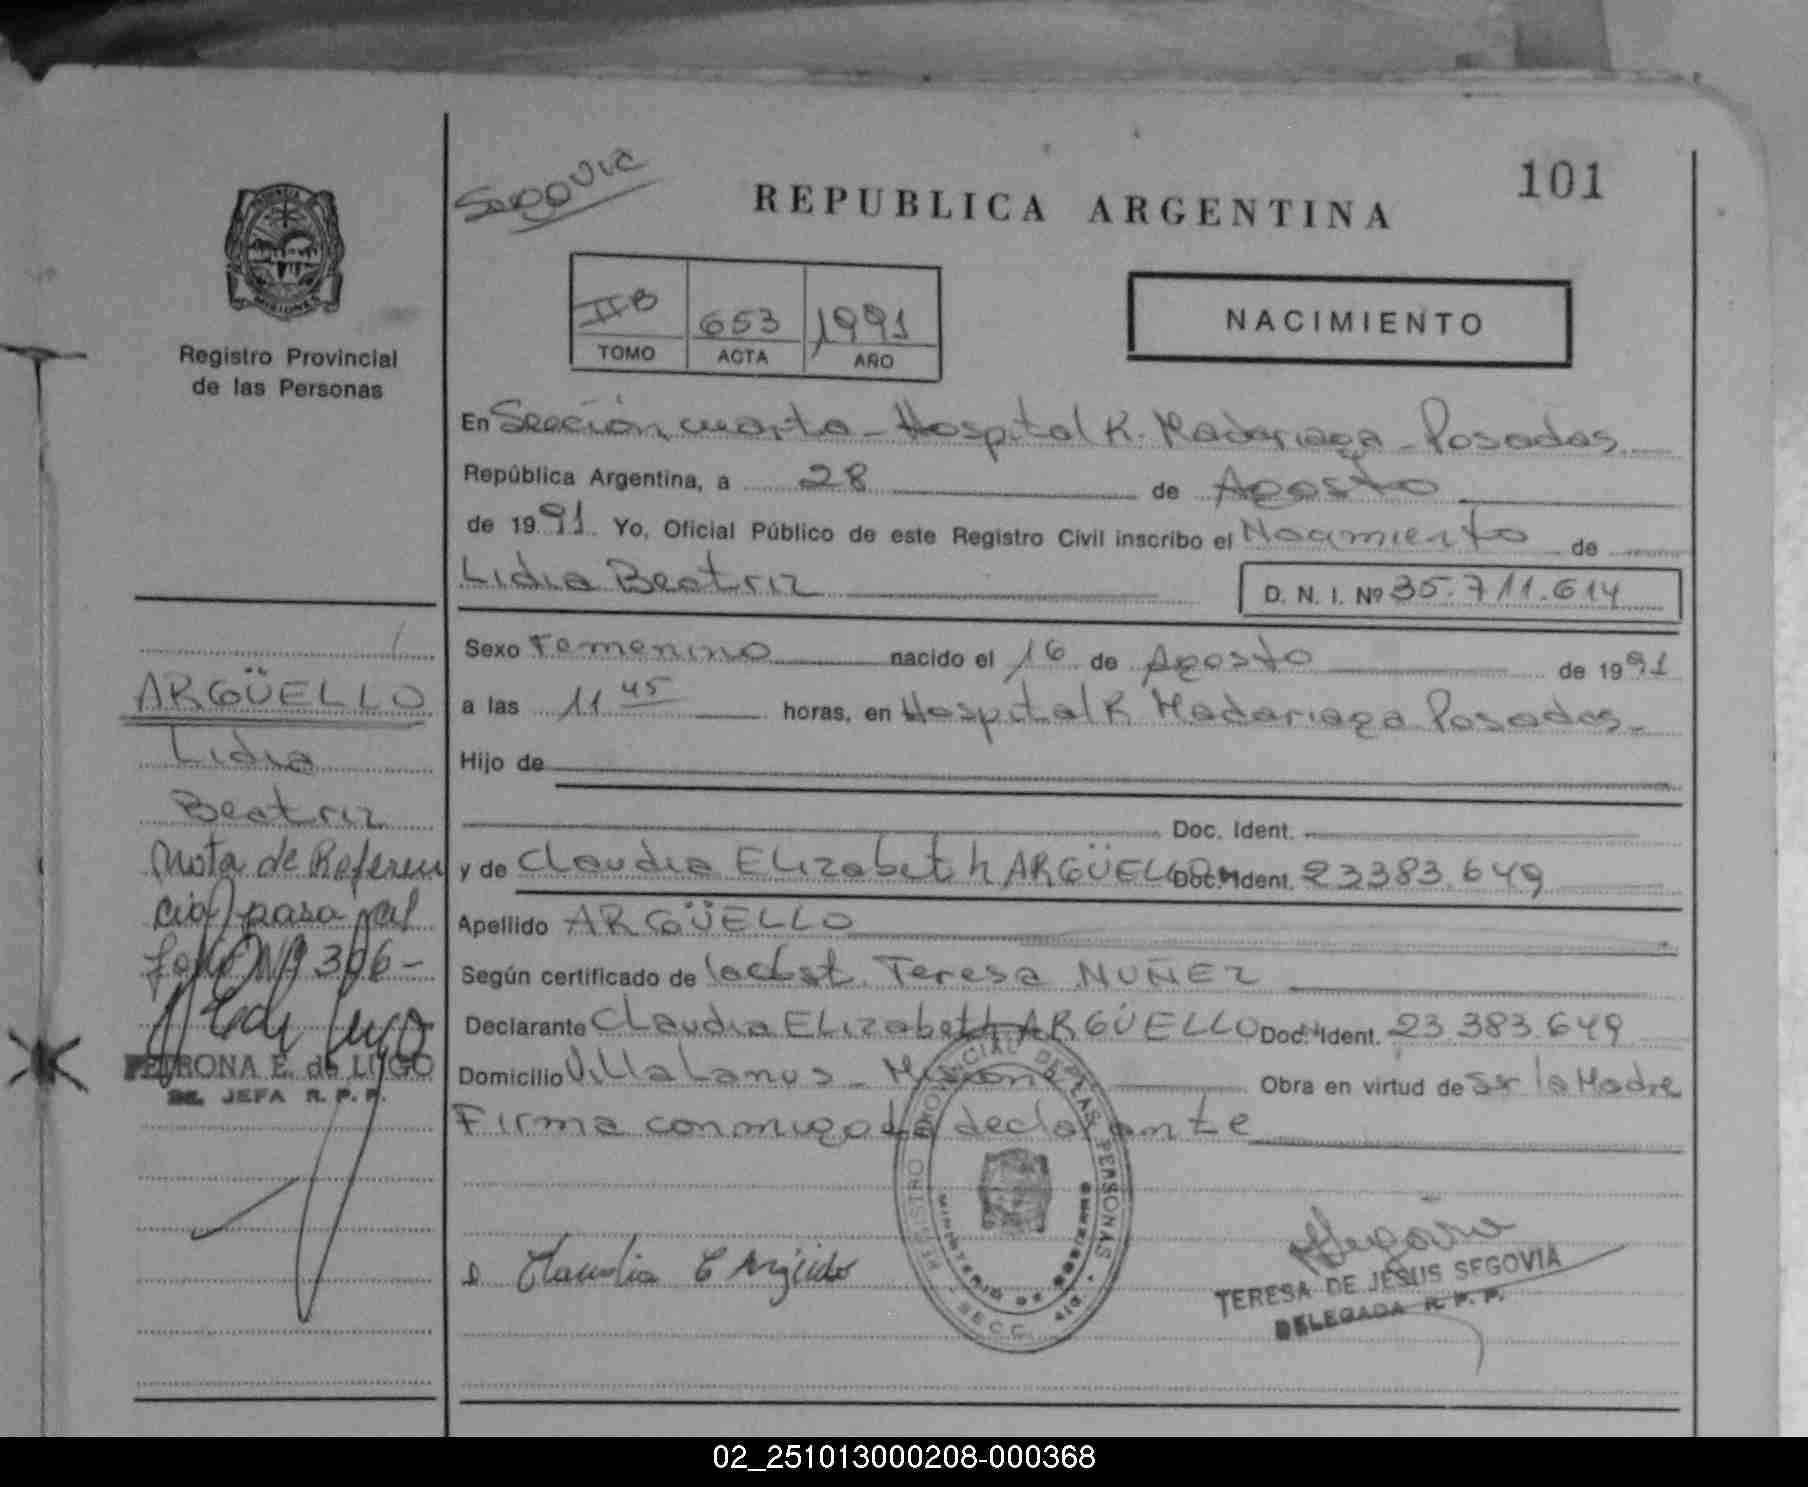 101
Segovia
REPUBLICA ARGENTINA
MISIONES
Registro Provincial
de las Personas
IIB 653 1991
TOMO ACTA AÑO
NACIMIENTO
En Sección cuarta - Hospital R. Madariaga - Posadas
República Argentina, a 28 de Agosto
de 1991 Yo, Oficial Público de este Registro Civil inscribo el Nacimiento de
Lidia Beatriz D. N. I. Nº 35.711.614
Sexo Femenino nacido el 16 de Agosto de 1991
a las 11 45 horas, en Hospital R Madariaga Posadas-
Hijo de
Doc. Ident.
y de Claudia Elizabeth ARGÜELLO Doc. Ident. 23383.649
Apellido ARGÜELLO
Según certificado de la obst. Teresa NUÑEZ
Declarante Claudia Elizabeth ARGÜELLO Doc. Ident. 23.383.649
Domicilio Villa Lanus - Misiones Obra en virtud de Ser la Madre
Firma conmigo la declarante
ARGÜELLO
Lidia
Beatriz
Nota de Referen
cia pasa al
folio Nº 306-
PETRONA E. de LUGO
JEFA R. P. P.
REGISTRO PROVINCIAL DE LAS PERSONAS
MINISTERIO DE GOBIERNO
SECC. 4ta
Claudia E Argüello
Segovia
TERESA DE JESUS SEGOVIA
DELEGADA R. P. P.
02_251013000208-000368